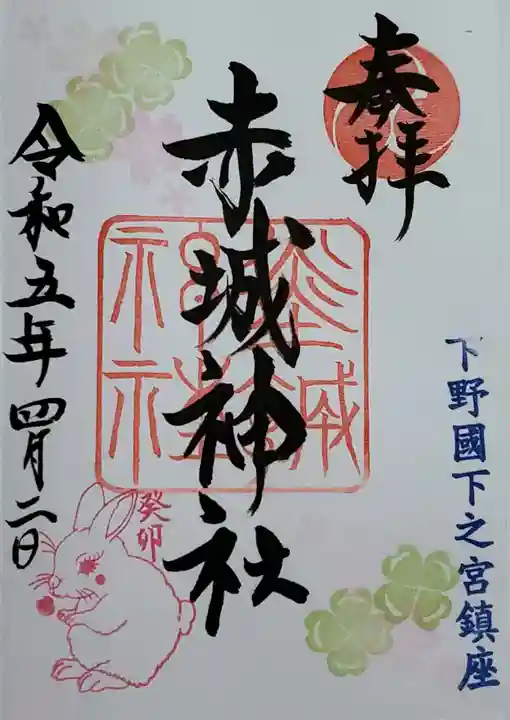 奉拝
下野國下之宮鎮座
赤城神社
令和五年四月二日
癸卯